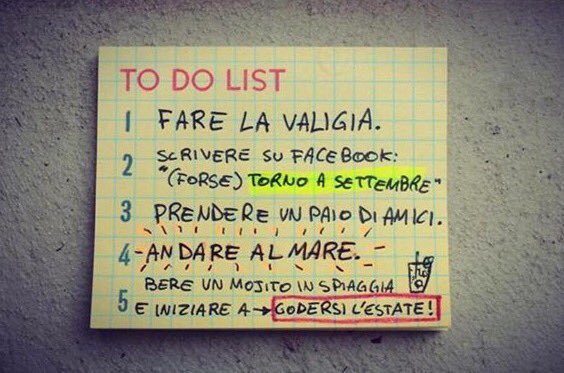 TO DO LIST
1 FARE LA VALIGIA.
2 SCRIVERE SU FACEBOOK:
"(FORSE) TORNO A SETTEMBRE"
3 PRENDERE UN PAIO DI AMICI.
4 ANDARE AL MARE.
5 BERE UN MOJITO IN SPIAGGIA
E INIZIARE A → GODERSI L'ESTATE!